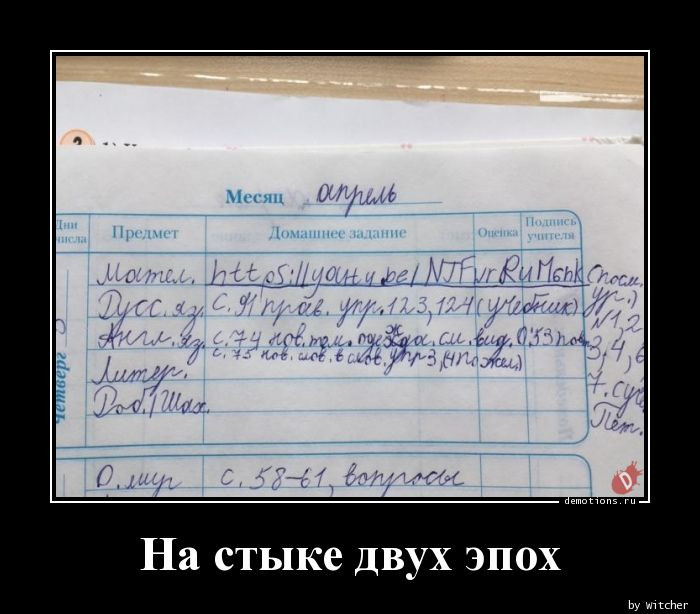 Месяц апрель
Дни числа
Предмет
Домашнее задание
Оценка
Подпись учителя
Четверг
Матем. https://youtu.be/NJFvrRuM6hk (посм. ур.)
Русс. яз. прав. упр. 123, 124 (учебник) №1,2
Англ. яз. с. 74 нов. см. вид. 0:53 3,4,6
с. 75 нов. слов. в слов. упр 3, (4 по жел.)
Литер. 7.
Роб./Шах.
О. мир с. 58-61, вопросы
demotions.ru
На стыке двух эпох
by witcher